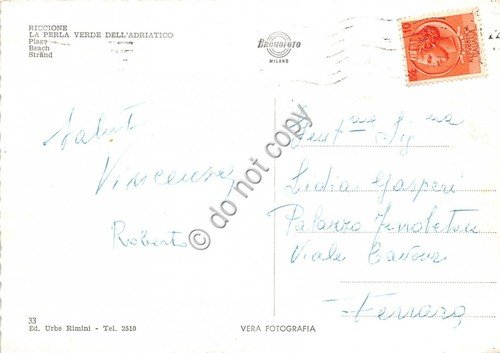 RICCIONE
LA PERLA VERDE DELL'ADRIATICO
Plage
Beach
Strand
MILANO
Saluti
Vincenzo
Roberto
Gent.ma Sig.na
Lidia Gasperi
Palazzo
Viale Cavour
Ferrara
33
Ed. Urbe Rimini - Tel. 2510
VERA FOTOGRAFIA
do not copy